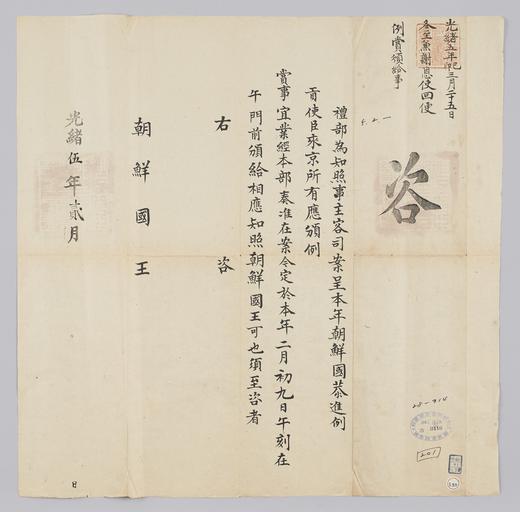 光緒五年己卯三月二十五日
冬至兼謝恩使回便
例賞頒給事
咨
禮部爲知照事主客司案呈本年朝鮮國恭進例
貢使臣來京所有應頒例
賞事宜業經本部奏准在案今定於本年二月初九日午刻在
午門前頒給相應知照朝鮮國王可也須至咨者
右 咨
朝鮮國王
光緒伍年貳月
日
201